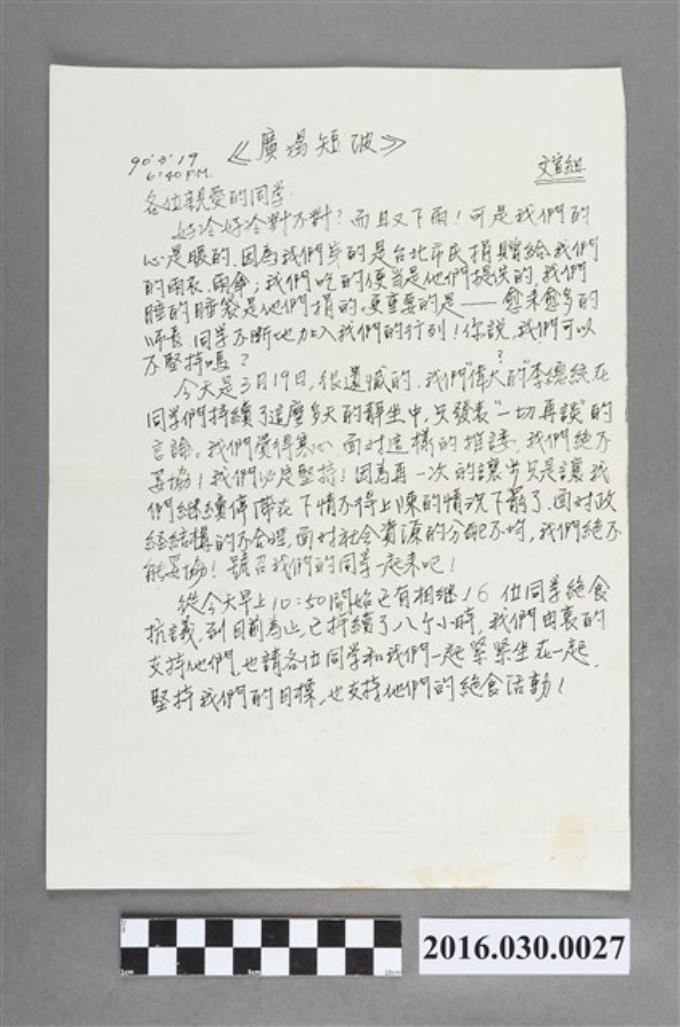 《廣場短波》
90'3'19
6:40 P.M.
文宣組
各位親愛的同学:
好冷好冷對不對?而且又下雨!可是我們的
心是暖的,因為我們穿的是台北市民捐贈給我們
的雨衣、雨傘;我們吃的便当是他們提供的,我們
睡的睡袋是他們捐的。更重要的是——愈来愈多的
师長、同学不断地加入我們的行列!你說,我們可以
不堅持嗎?
今天是3月19日,很遺憾的,我們"偉大的"?李總統在
同学們持續了這麼多天的靜坐中,只發表"一切再談"的
言論。我們覺得寒心,面对這樣的推諉,我們絕不
妥協!我們必定堅持!因為再一次的讓步只是讓我
們継續停滯在下情不得上陳的情況下罷了。面对政
経結構的不合理,面对社会資源的分配不均,我們絕不
能妥協!號召我們的同学一起来吧!
從今天早上10:50開始已有相継16位同学絕食
抗議,到目前為止,已持續了八个小時,我們由衷的
支持他們,也請各位同学和我們一起緊緊坐在一起,
堅持我們的目標,也支持他們的絕食活動!
2016.030.0027